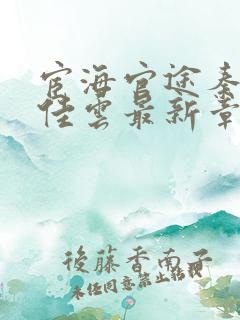 宦海官途秦
佳雲最新章
後藤香南子
未任同意禁止轉載